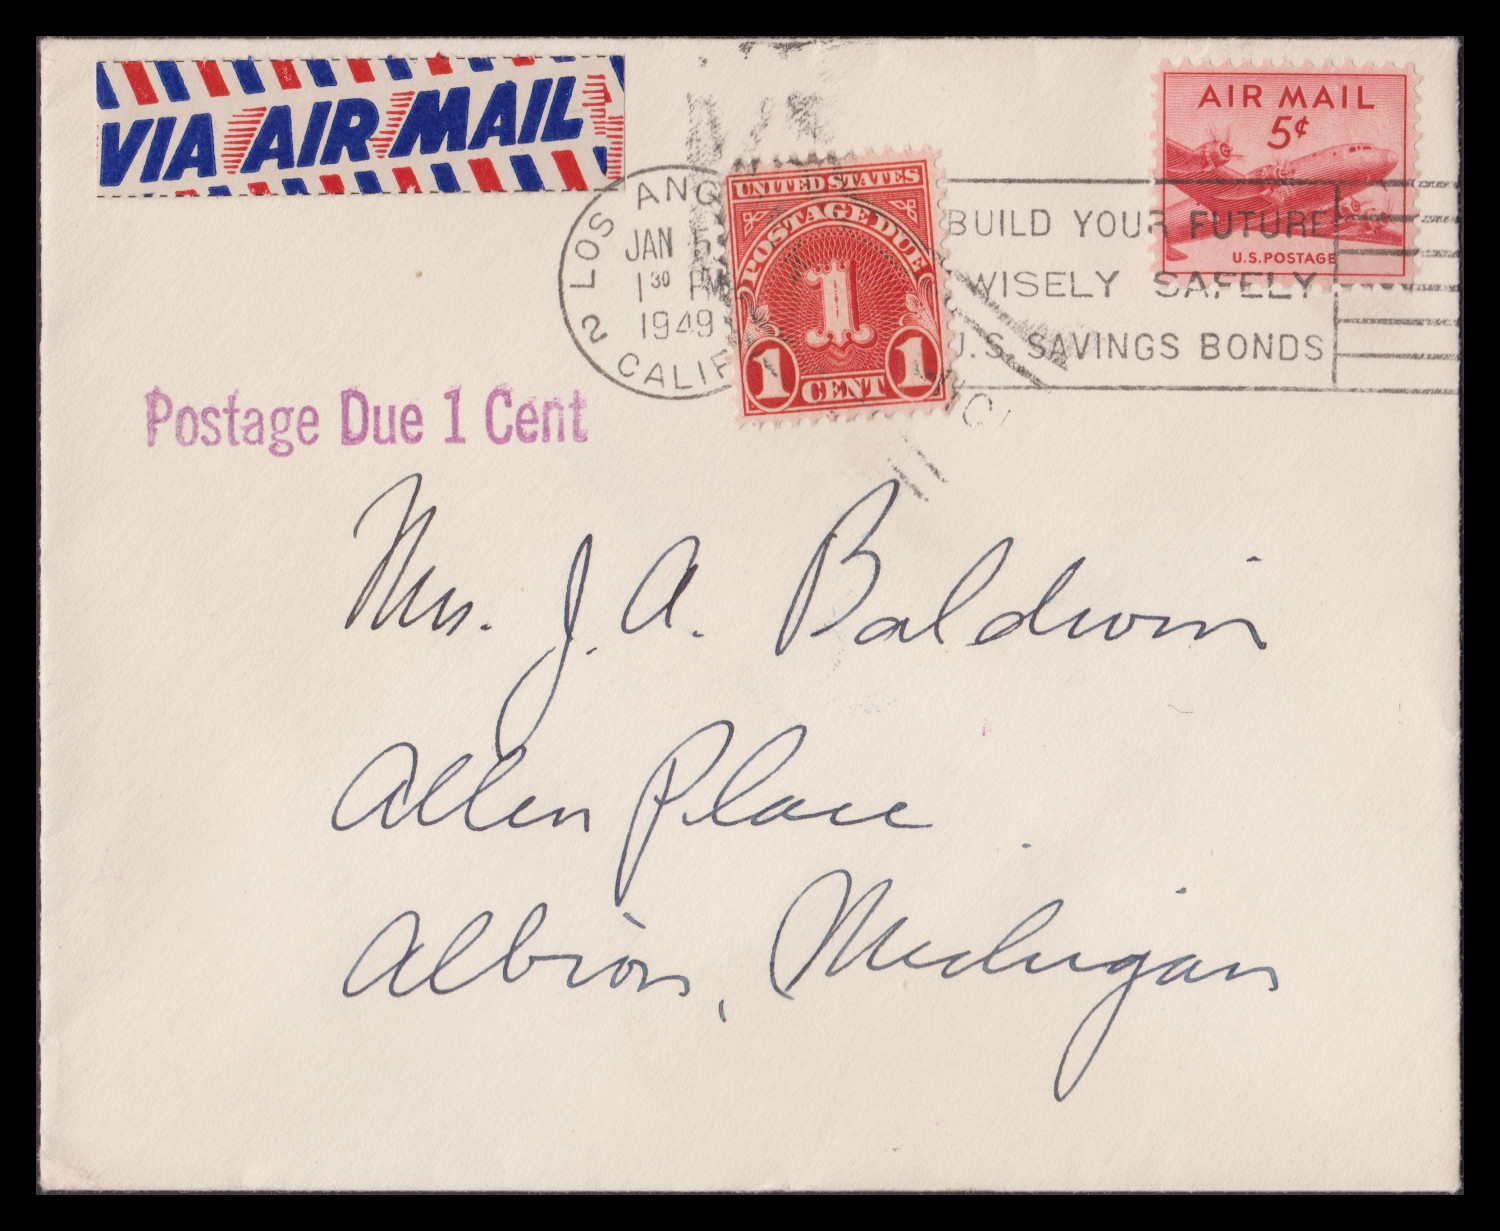 VIA AIR MAIL
AIR MAIL
5¢
U.S. POSTAGE
LOS ANG
JAN 5
1 30 PM
1949
2 CALIF
BUILD YOUR FUTURE
WISELY SAFELY
U.S. SAVINGS BONDS
UNITED STATES
POSTAGE DUE
1
1 CENT 1
Postage Due 1 Cent
Mrs. J. A. Baldwin
Allen Place
Albion, Michigan